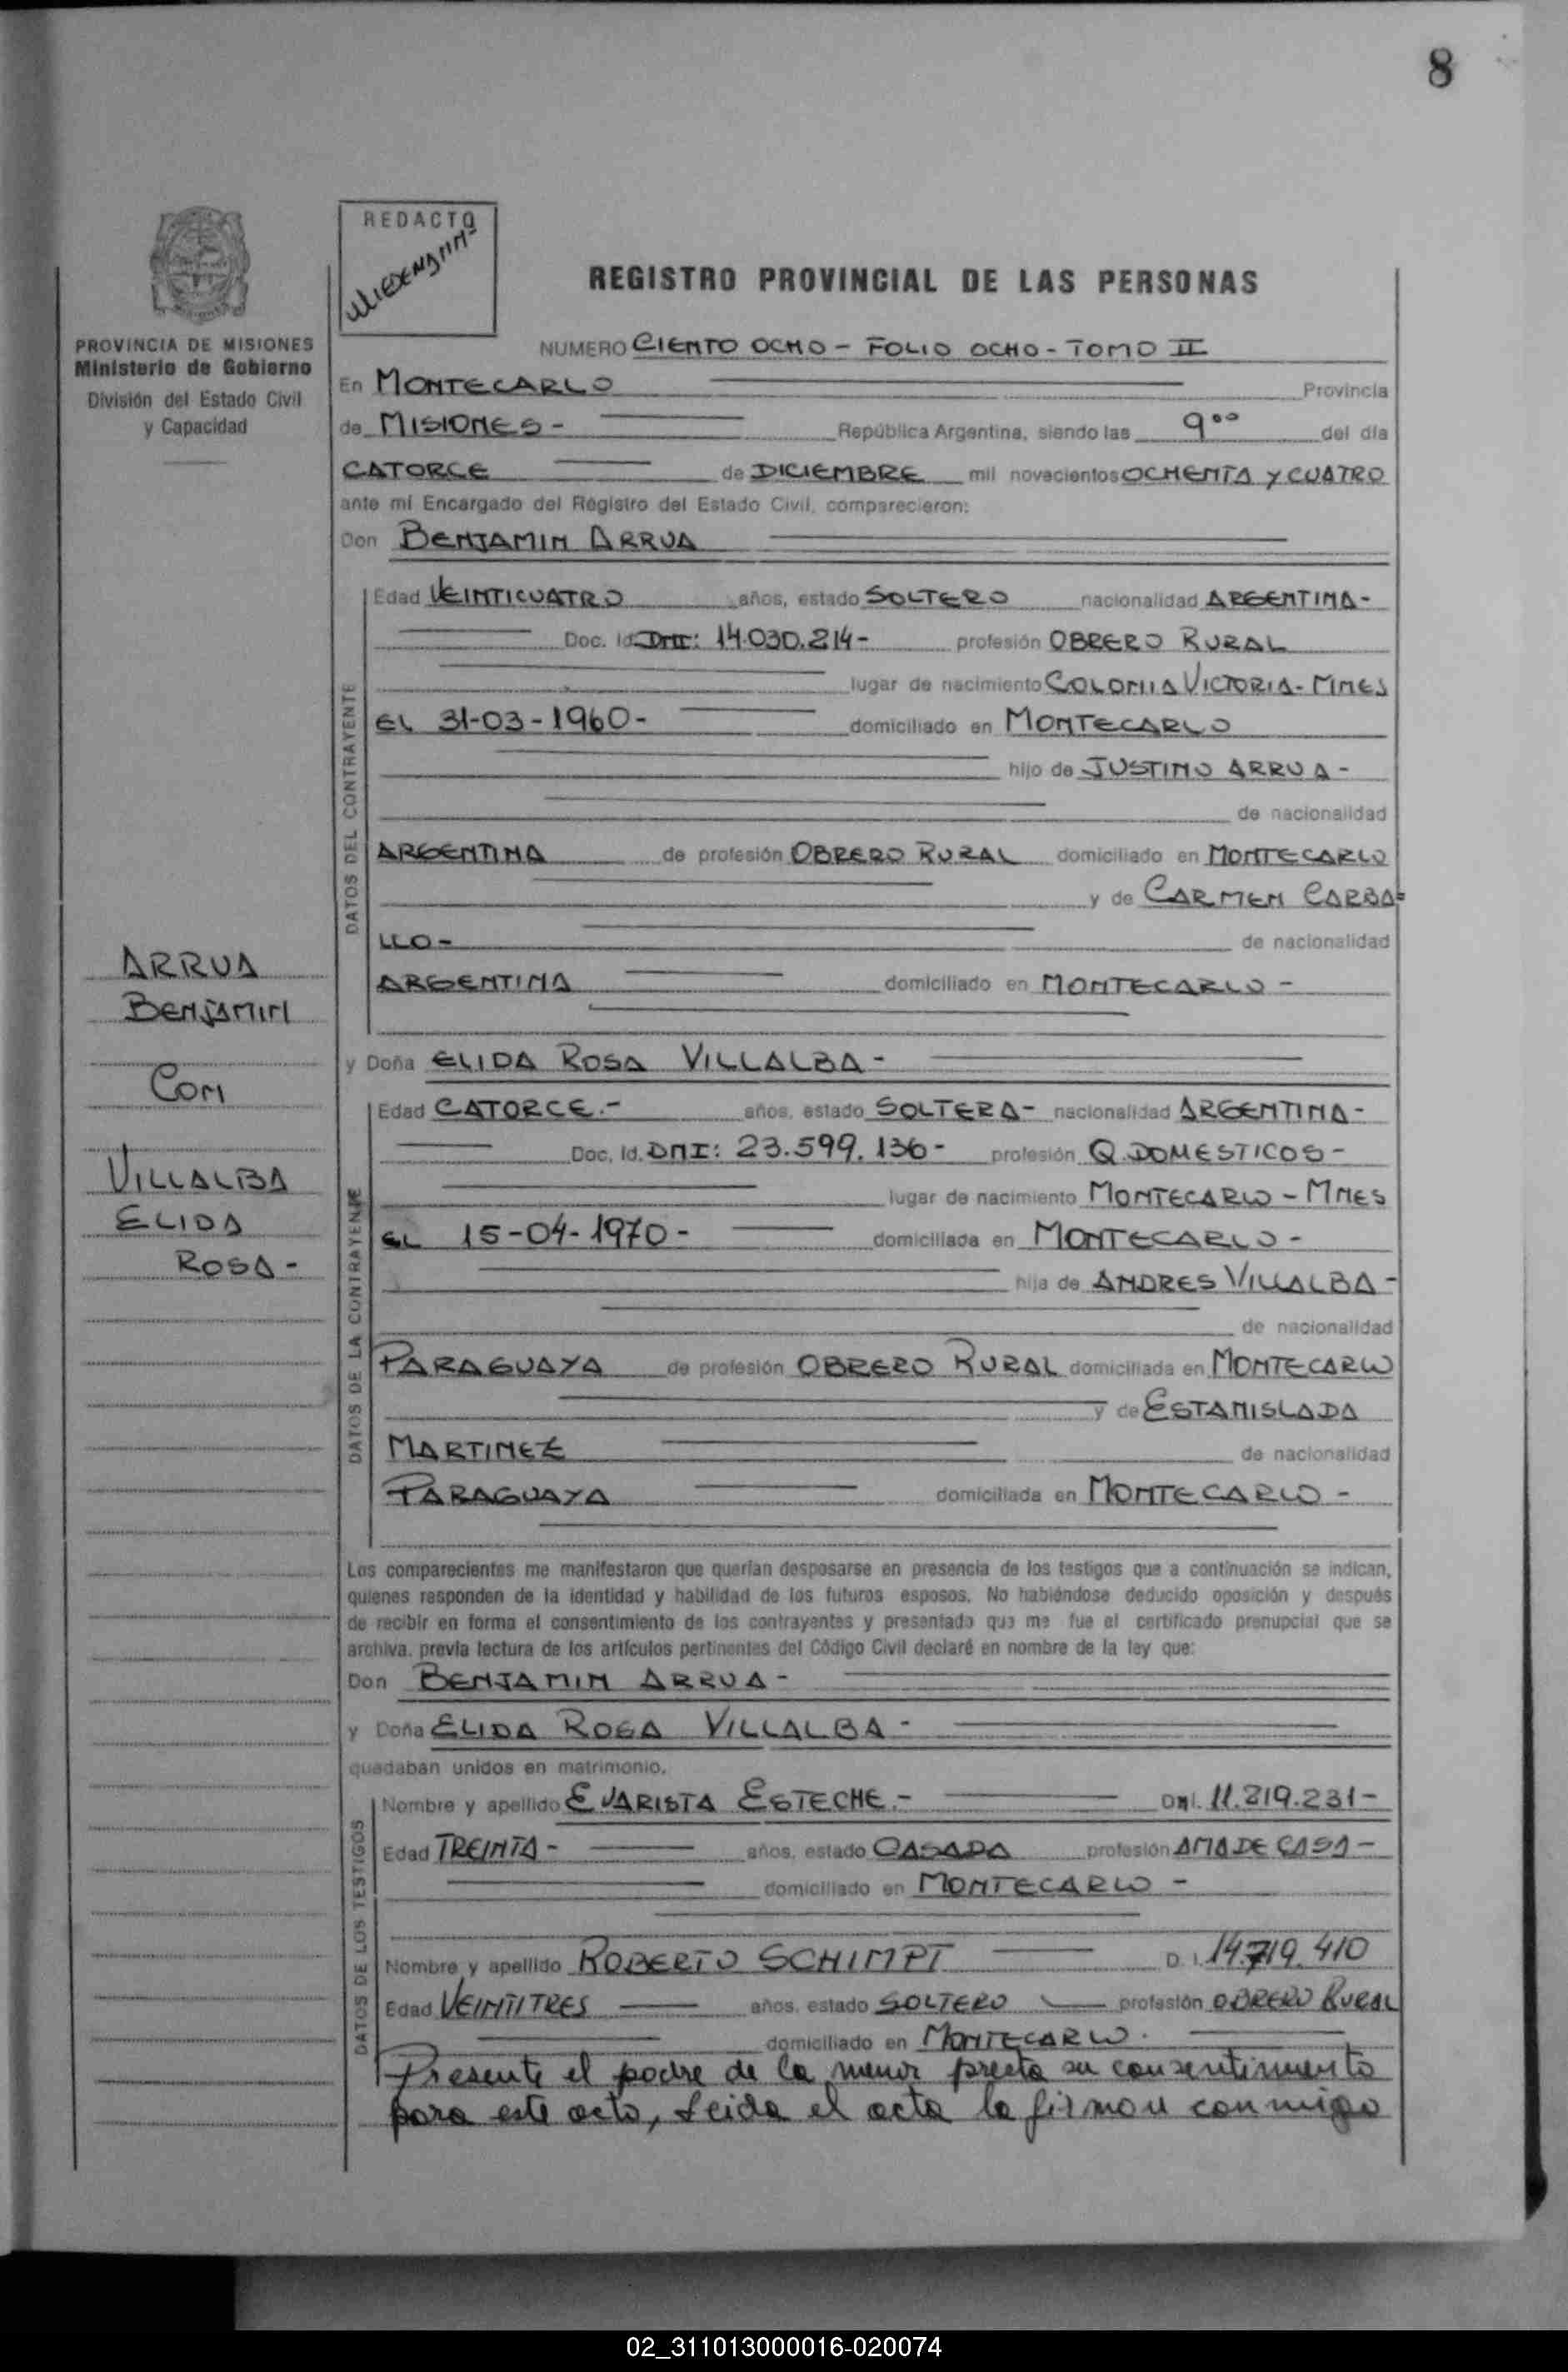 8
REDACTO
REGISTRO PROVINCIAL DE LAS PERSONAS
PROVINCIA DE MISIONES
Ministerio de Gobierno
División del Estado Civil
y Capacidad
NUMERO CIENTO OCHO - FOLIO OCHO - TOMO II
En MONTECARLO Provincia
de MISIONES - República Argentina, siendo las 9°° del día
CATORCE de DICIEMBRE mil novecientos OCHENTA Y CUATRO
ante mi Encargado del Registro del Estado Civil, comparecieron:
Don BENJAMIN ARRUA
DATOS DEL CONTRAYENTE
Edad VEINTICUATRO años, estado SOLTERO nacionalidad ARGENTINA -
Doc. Id. DNI: 14.030.214 - profesión OBRERO RURAL
lugar de nacimiento COLONIA VICTORIA - MNES
EL 31-03-1960 - domiciliado en MONTECARLO
hijo de JUSTINO ARRUA -
de nacionalidad
ARGENTINA de profesión OBRERO RURAL domiciliado en MONTECARLO
y de CARMEN CARBA=
LLO - de nacionalidad
ARGENTINA domiciliado en MONTECARLO -
ARRUA
BENJAMIN
CON
VILLALBA
ELIDA
ROSA -
y Doña ELIDA ROSA VILLALBA -
DATOS DE LA CONTRAYENTE
Edad CATORCE.- años, estado SOLTERA - nacionalidad ARGENTINA -
Doc. Id. DNI: 23.599.136 - profesión Q. DOMESTICOS -
lugar de nacimiento MONTECARLO - MNES
EL 15-04-1970 - domiciliada en MONTECARLO -
hija de ANDRES VILLALBA -
de nacionalidad
PARAGUAYA de profesión OBRERO RURAL domiciliada en MONTECARLO
y de ESTANISLADA
MARTINEZ de nacionalidad
PARAGUAYA domiciliada en MONTECARLO -
Los comparecientes me manifestaron que querían desposarse en presencia de los testigos que a continuación se indican,
quienes responden de la identidad y habilidad de los futuros esposos. No habiéndose deducido oposición y después
de recibir en forma el consentimiento de los contrayentes y presentado que me fue el certificado prenupcial que se
archiva, previa lectura de los artículos pertinentes del Código Civil declaré en nombre de la ley que:
Don BENJAMIN ARRUA -
y Doña ELIDA ROSA VILLALBA -
quedaban unidos en matrimonio.
DATOS DE LOS TESTIGOS
Nombre y apellido EVARISTA ESTECHE.- DNI. 11.819.231 -
Edad TREINTA - años, estado CASADA profesión AMA DE CASA -
domiciliado en MONTECARLO -
Nombre y apellido ROBERTO SCHIMPT D. I. 14.719.410
Edad VEINTITRES años, estado SOLTERO profesión OBRERO RURAL
domiciliado en MONTECARLO.
Presente el padre de la menor presta su consentimiento
para este acto, Leida el acta la firman conmigo
02_311013000016-020074